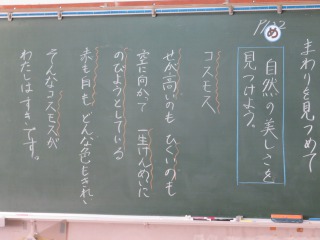 まわりを見つめて
P122
め
自然の美しさを
見つけよう。
コスモス
せが高いのも ひくいのも
空に向かって 一生けんめいに
のびようとしている
赤も白も どんな色もきれい
そんなコスモスが
わたしはすきです。